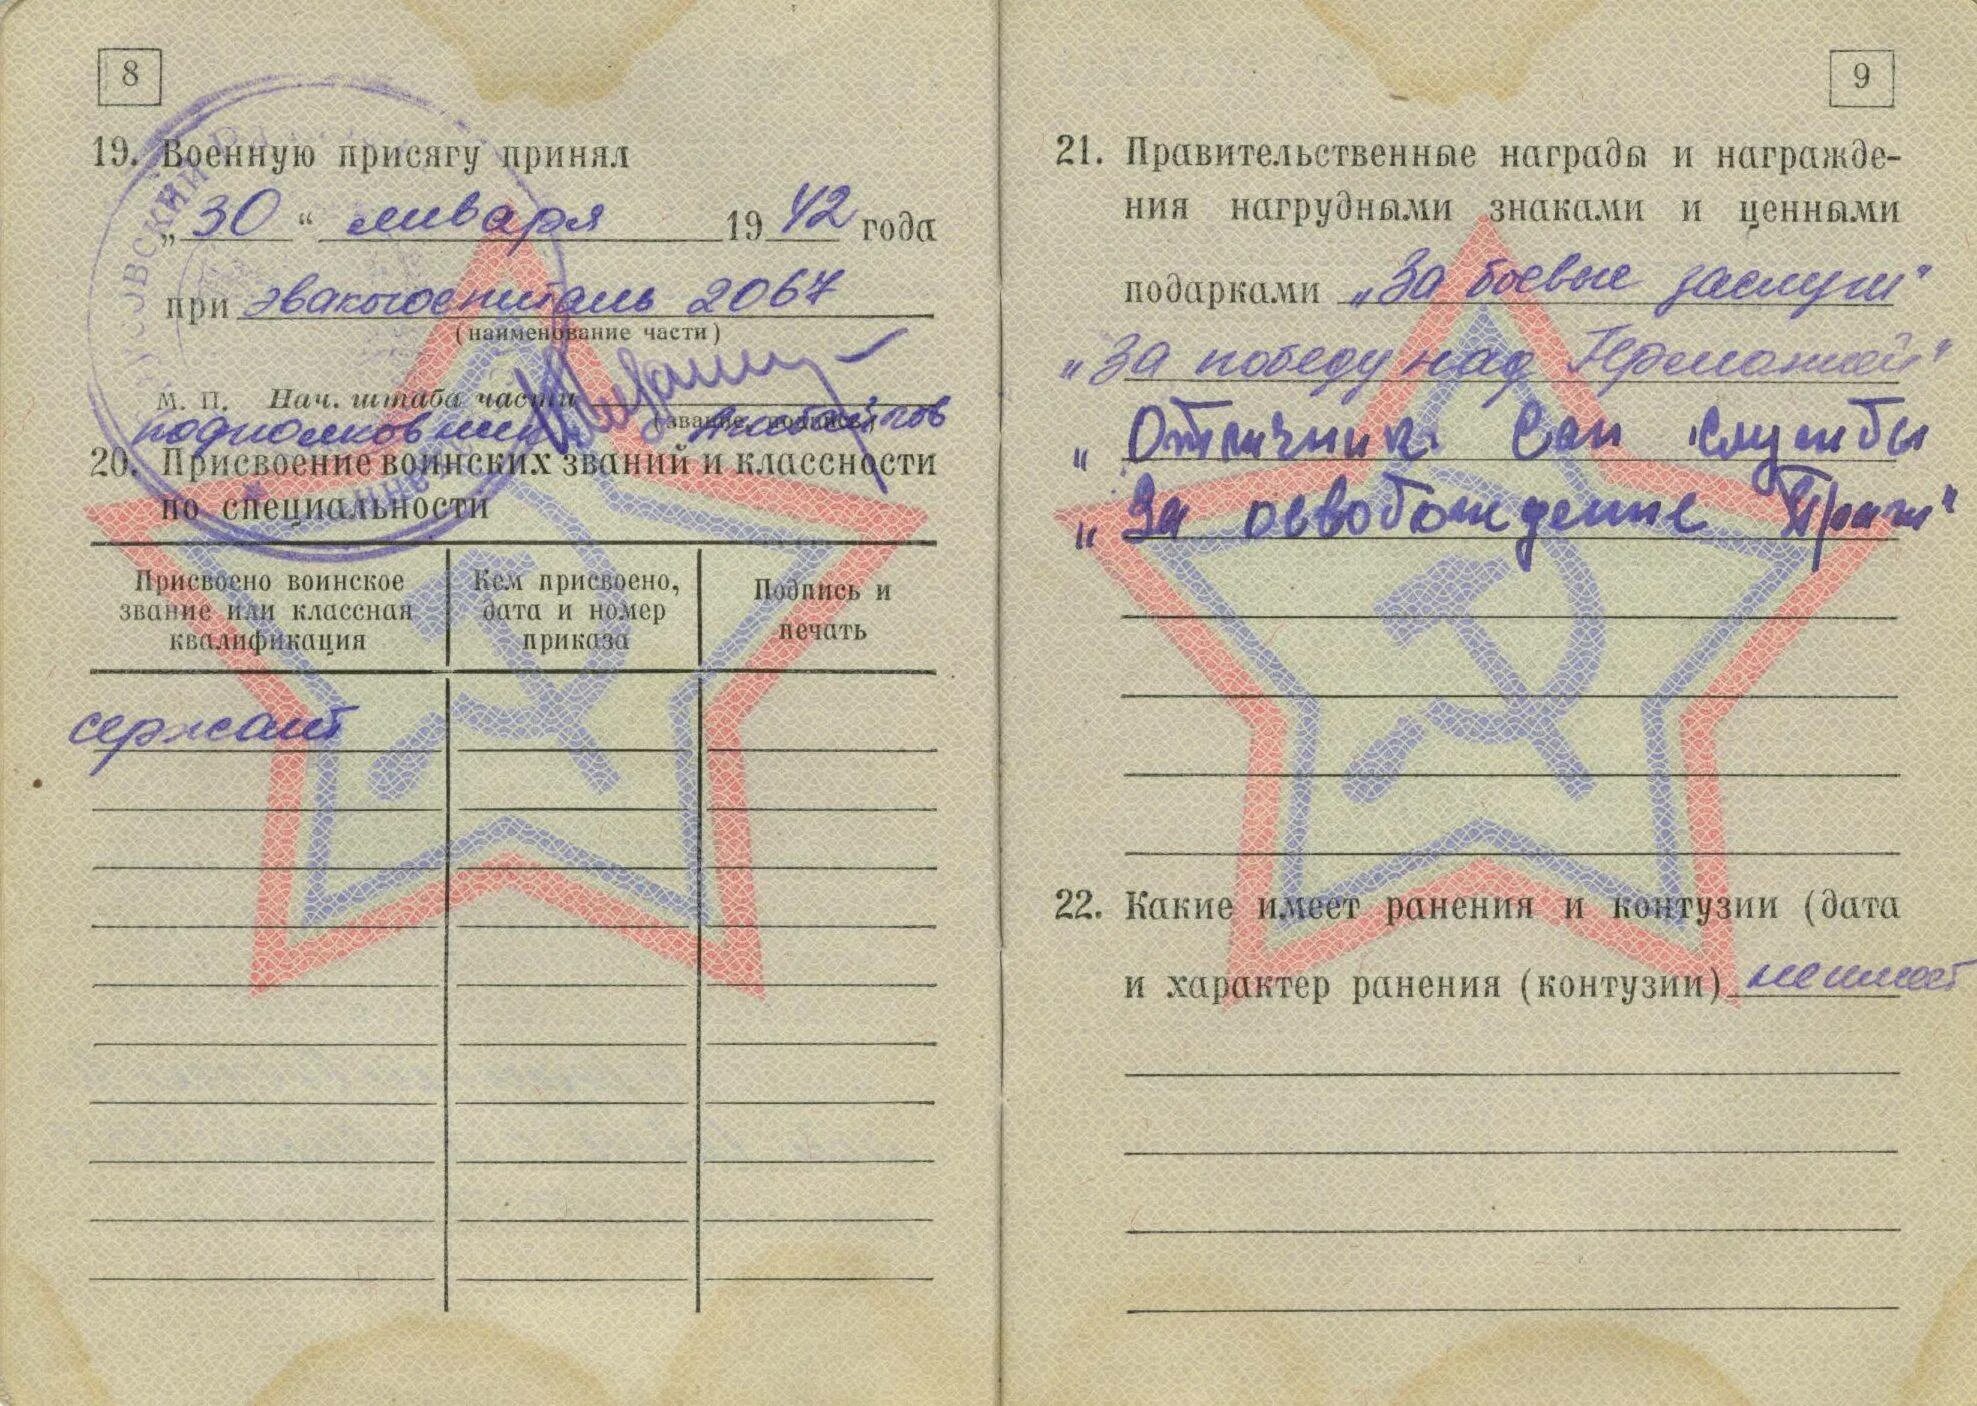 8
19. Военную присягу принял
„30“ января 1942 года
при эвакогоспиталь 2067
(наименование части)
М. П. Нач. штаба части
(звание, подпись)
подполковник
20. Присвоение воинских званий и классности
по специальности
Присвоено воинское
звание или классная
квалификация
Кем присвоено,
дата и номер
приказа
Подпись и
печать
сержант
9
21. Правительственные награды и награжде-
ния нагрудными знаками и ценными
подарками „За боевые заслуги"
„За победу над Германией"
„Отличник Сан службы
„За освобождение Праги"
22. Какие имеет ранения и контузии (дата
и характер ранения (контузии) не имеет